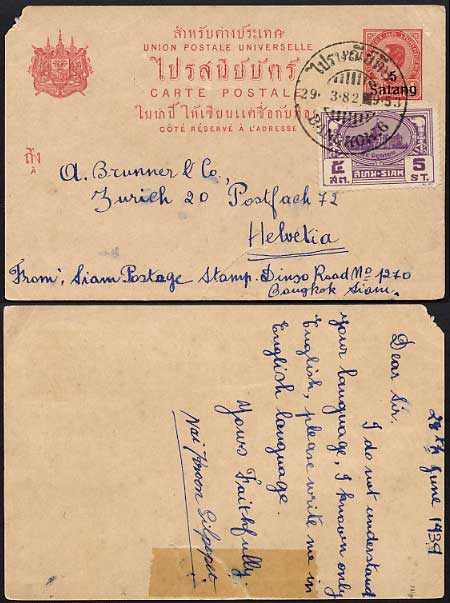 สำหรับต่างประเทศ
UNION POSTALE UNIVERSELLE
ไปรสนียบัตร์
CARTE POSTALE
ในน่านี้ ให้เขียนแต่ชื่อกับ
CÔTÉ RÉSERVÉ À L'ADRESSE
5
Satang
29 3.82
BANGKOK 6
ถึง
A
๕ สยาม-SIAM 5
สต. ST.
A. Brunner & Co.,
Zurich 20 Postfach 72
Helvetia
From, Siam Postage Stamp. Dinso Road No 1270
Bangkok Siam.
28th June 1939
Dear Sir.
I do not understand
your language, I known only
English, please write me in
English language.
Yours Faithfully
Nai